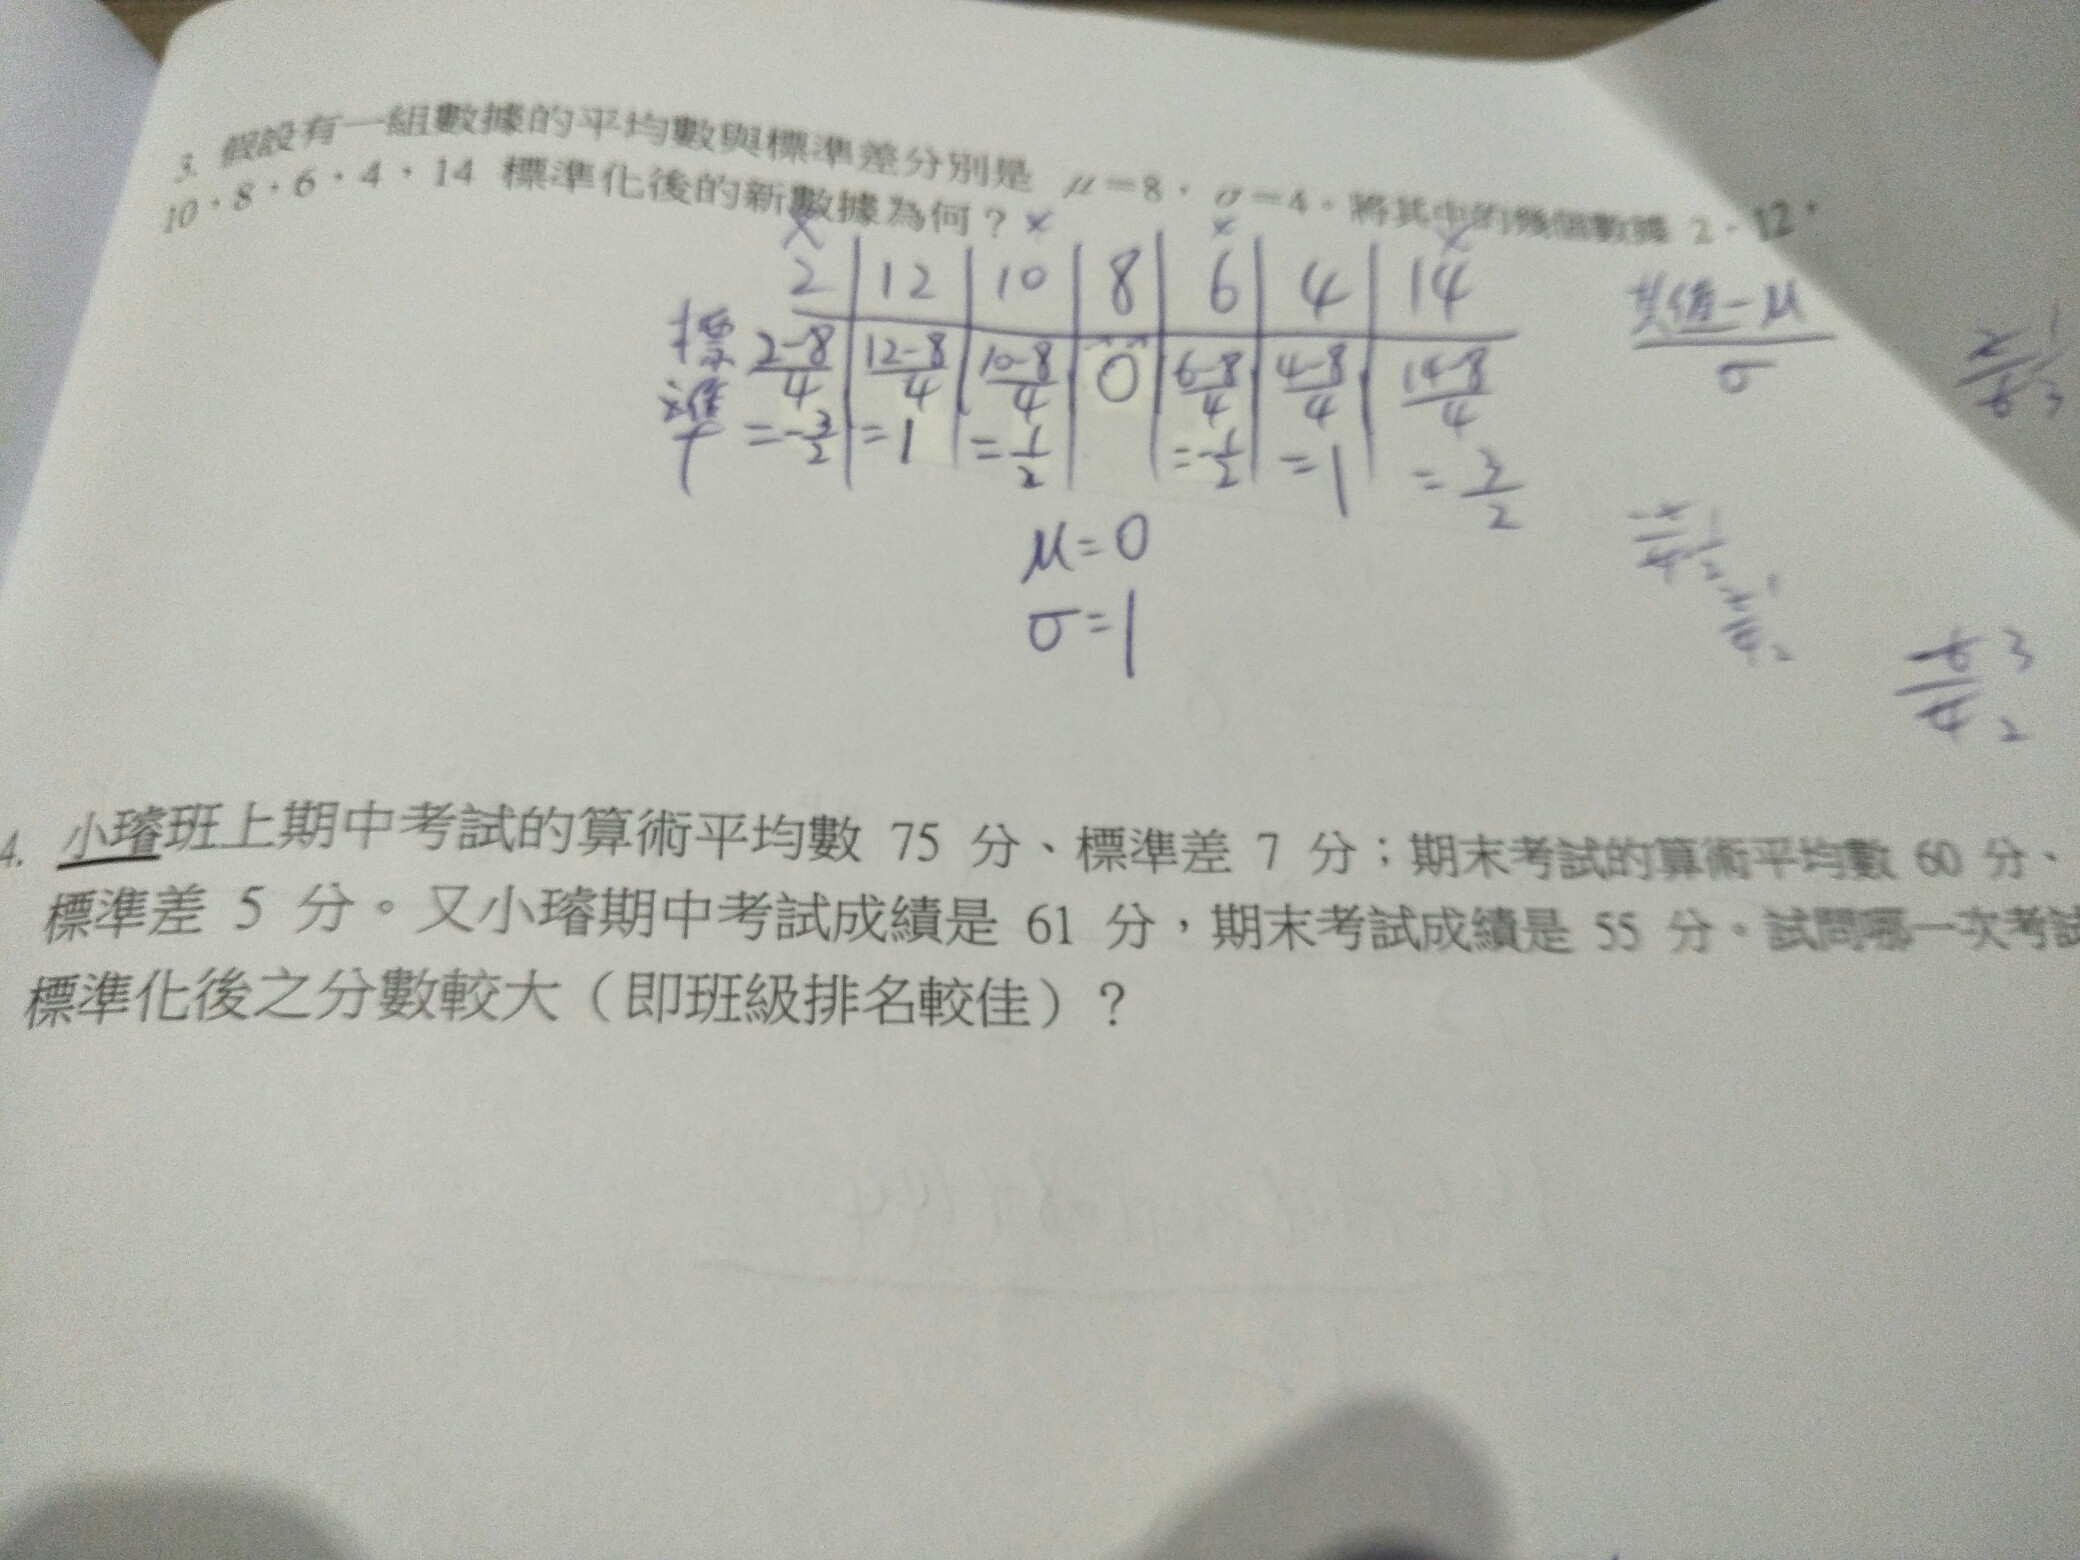 3. 假設有一組數據的平均數與標準差分別是 μ=8，σ=4。將其中的幾個數據 2、12、
10、8、6、4、14 標準化後的新數據為何？
x x x x
2 12 10 8 6 4 14
標準 2-8/4 12-8/4 10-8/4 0 6-8/4 4-8/4 14-8/4
=-3/2 =1 =1/2 =-1/2 =1 =3/2
-μ/σ
μ=0
σ=1
4. 小璿班上期中考試的算術平均數 75 分、標準差 7 分；期末考試的算術平均數 60 分、
標準差 5 分。又小璿期中考試成績是 61 分，期末考試成績是 55 分。試問哪一次考試
標準化後之分數較大（即班級排名較佳）？